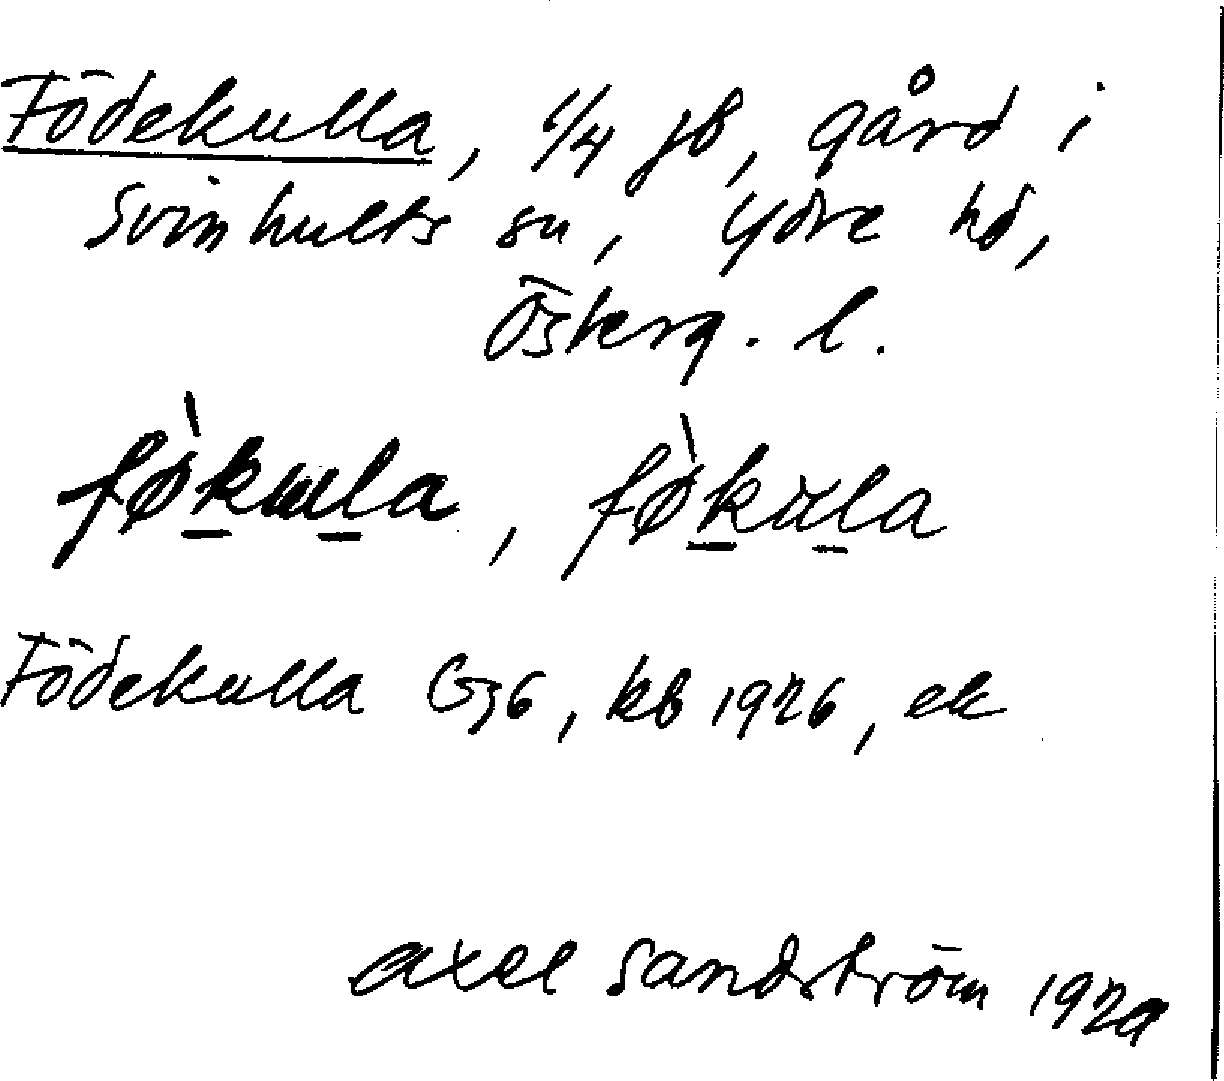 Födekulla, 1/4 jb, gård i
Svinhults sn, Ydre hd,
Österg. l.
fø̀kula, fø̀kula
Födekulla G36, kb 1926, ek
Axel Sandström 1929